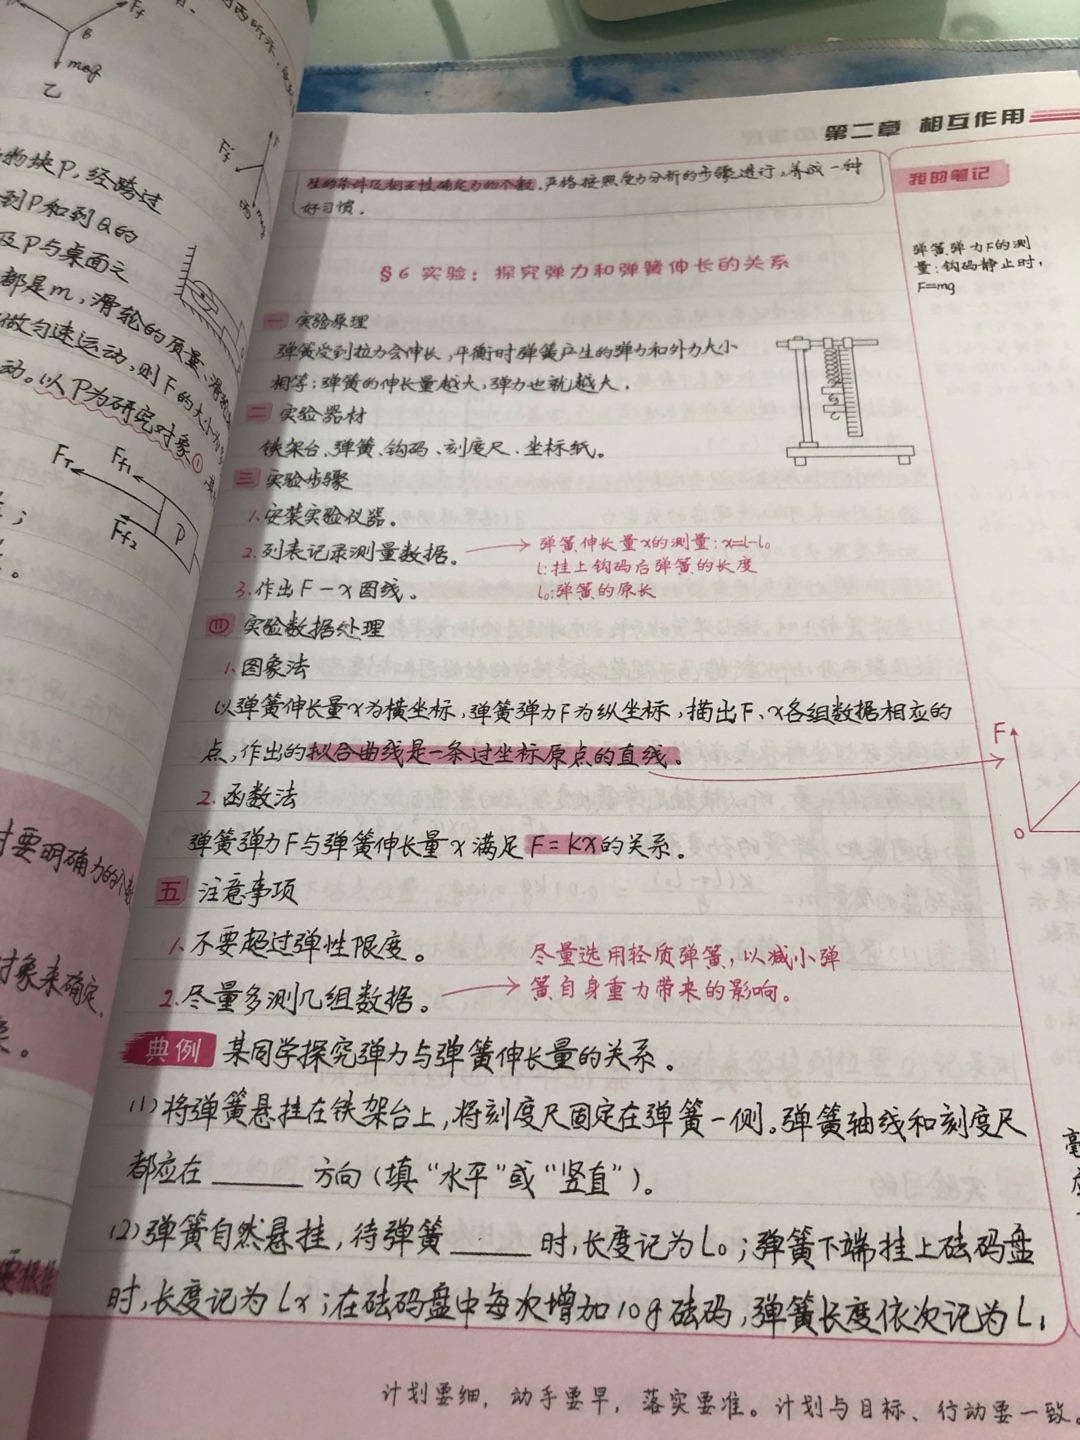 乙
B
Ff
m_Bg
Ff
物块P，经跨过
到P和到Q的
及P与桌面之
都是m，滑轮的质量、滑
做匀速运动，则F的大小为
动。以P为研究对象①
FT
Ff1
Ff2
P
时要明确力的个数
对象来确定，
第二章 相互作用
我的笔记
生的条件及相互性确定力的个数，严格按照受力分析的步骤进行，养成一种
好习惯。
弹簧弹力F的测
量：钩码静止时，
F=mg
§6 实验：探究弹力和弹簧伸长的关系
一 实验原理
弹簧受到拉力会伸长，平衡时弹簧产生的弹力和外力大小
相等；弹簧的伸长量越大，弹力也就越大．
二 实验器材
铁架台、弹簧、钩码、刻度尺、坐标纸。
三 实验步骤
1.安装实验仪器。
2.列表记录测量数据。
弹簧伸长量x的测量：x=l-l₀
l：挂上钩码后弹簧的长度
l₀：弹簧的原长
3.作出F－x图线。
四 实验数据处理
1.图象法
以弹簧伸长量x为横坐标，弹簧弹力F为纵坐标，描出F、x各组数据相应的
点，作出的拟合曲线是一条过坐标原点的直线。
F
O
2.函数法
弹簧弹力F与弹簧伸长量x满足F=kx的关系。
五 注意事项
1.不要超过弹性限度。
2.尽量多测几组数据。
尽量选用轻质弹簧，以减小弹
簧自身重力带来的影响。
典例 某同学探究弹力与弹簧伸长量的关系．
(1)将弹簧悬挂在铁架台上，将刻度尺固定在弹簧一侧。弹簧轴线和刻度尺
都应在______方向（填“水平”或“竖直”）。
(2)弹簧自然悬挂，待弹簧______时，长度记为L₀；弹簧下端挂上砝码盘
时，长度记为Lx；在砝码盘中每次增加10g砝码，弹簧长度依次记为L₁
计划要细，动手要早，落实要准。计划与目标、行动要一致。